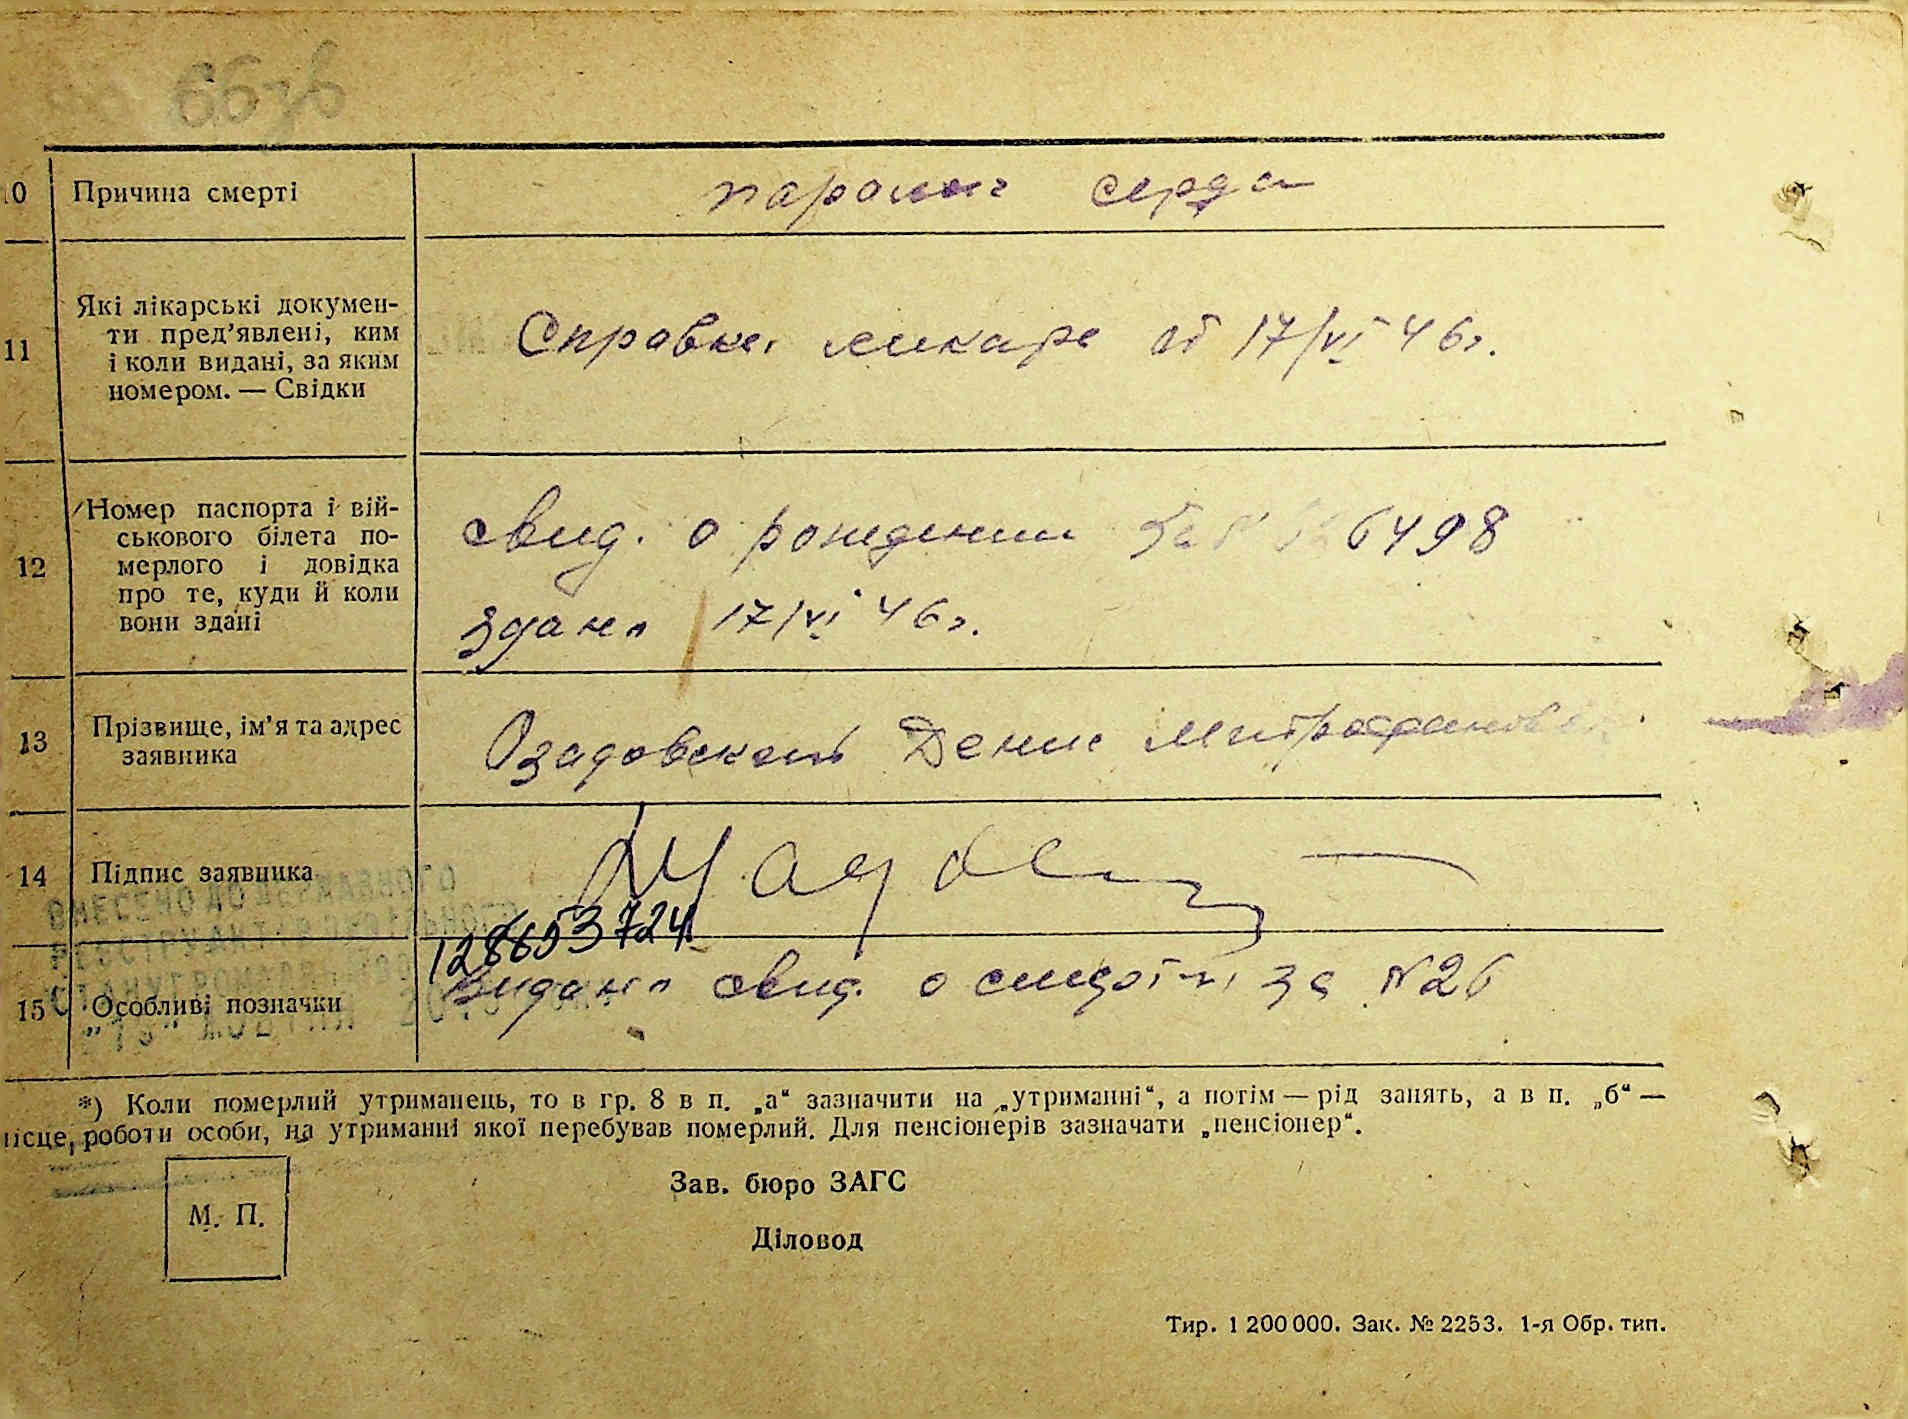 10 Причина смерті паролич серда
11 Які лікарські докумен-
ти пред’явлені, ким
і коли видані, за яким
номером. — Свідки
Справка ликаря от 17/VI 46г.
12 Номер паспорта і вій-
ськового білета по-
мерлого і довідка
про те, куди й коли
вони здані
свид. о рождении 6498
здано 17/VI 46г.
13 Прізвище, ім’я та адрес
заявника
Озадовский Денис Митрофанов
14 Підпис заявника
ВНЕСЕНО ДО ДЕРЖАВНОГО
128653724
15 Особливі позначки
Видано свид. о смерти за №26
*) Коли померлий утриманець, то в гр. 8 в п. „а“ зазначити на „утриманні“, а потім — рід занять, а в п. „б“ —
місце роботи особи, на утриманні якої перебував померлий. Для пенсіонерів зазначати „пенсіонер“.
М. П.
Зав. бюро ЗАГС
Діловод
Тир. 1 200 000. Зак. № 2253. 1-я Обр. тип.